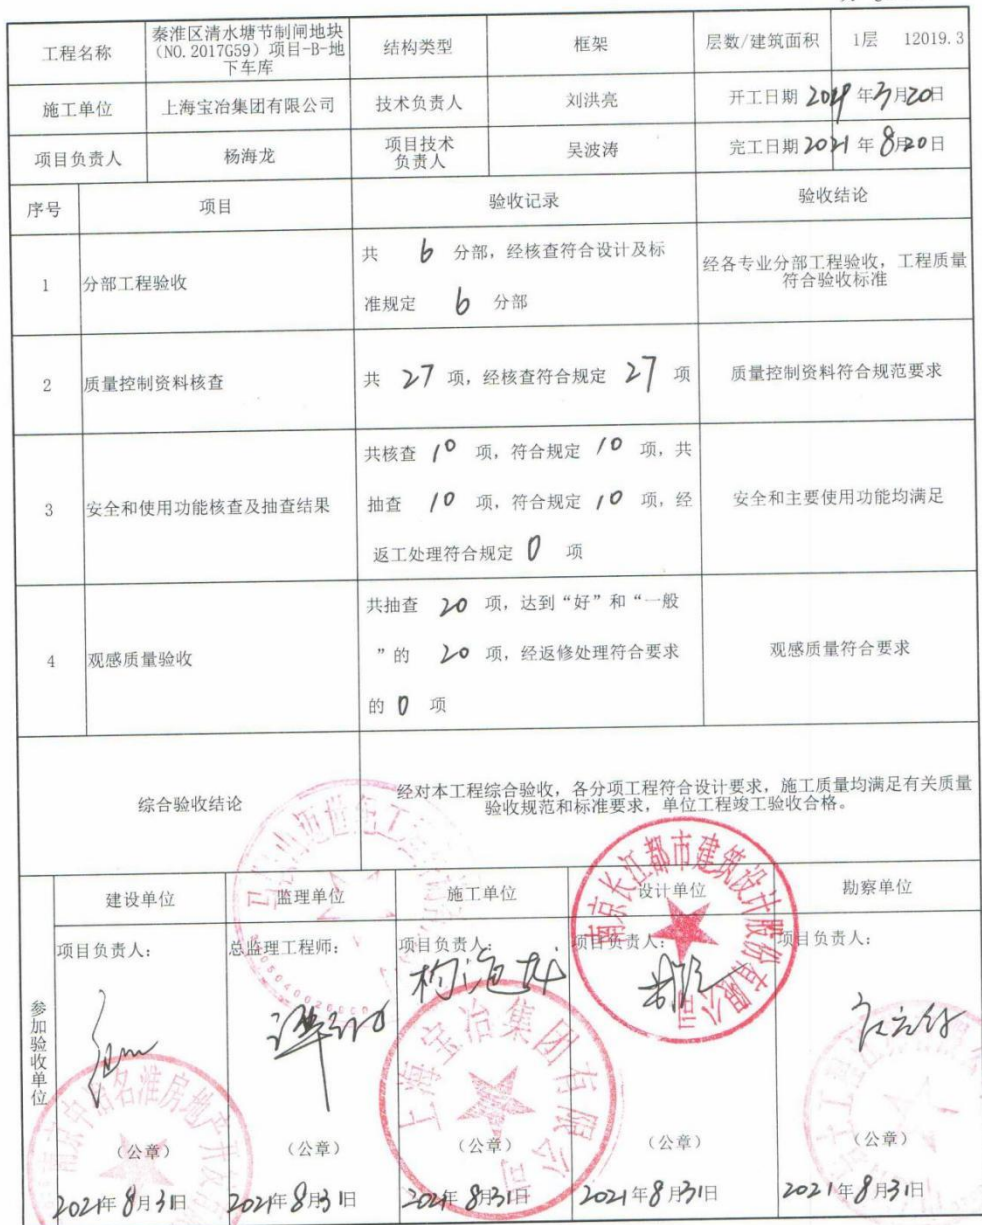 工程名称
秦淮区清水塘节制闸地块
(NO.2017G59)项目-B-地
下车库
结构类型
框架
层数/建筑面积
1层 12019.3
施工单位
上海宝冶集团有限公司
技术负责人
刘洪亮
开工日期 2019 年 7月20日
项目负责人
杨海龙
项目技术
负责人
吴波涛
完工日期 2021 年 8月20日
序号
项目
验收记录
验收结论
1
分部工程验收
共 6 分部，经核查符合设计及标
准规定 6 分部
经各专业分部工程验收，工程质量
符合验收标准
2
质量控制资料核查
共 27 项，经核查符合规定 27 项
质量控制资料符合规范要求
3
安全和使用功能核查及抽查结果
共核查 10 项，符合规定 10 项，共
抽查 10 项，符合规定 10 项，经
返工处理符合规定 0 项
安全和主要使用功能均满足
4
观感质量验收
共抽查 20 项，达到“好”和“一般
”的 20 项，经返修处理符合要求
的 0 项
观感质量符合要求
综合验收结论
经对本工程综合验收，各分项工程符合设计要求，施工质量均满足有关质量
验收规范和标准要求，单位工程竣工验收合格。
参加验收单位
建设单位
监理单位
施工单位
设计单位
勘察单位
项目负责人：
总监理工程师：
项目负责人：
项目负责人：
项目负责人：
杨海龙
南京长江都市建筑设计股份有限公司
上海宝冶集团有限公司
（公章）
（公章）
（公章）
（公章）
（公章）
2021年 8月31日
2021年 8月31日
2021年 8月31日
2021年 8月31日
2021年 8月31日